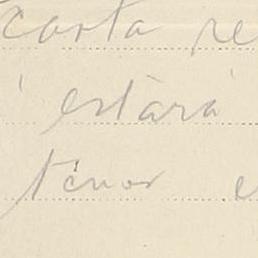 carta re
estará
tenor e